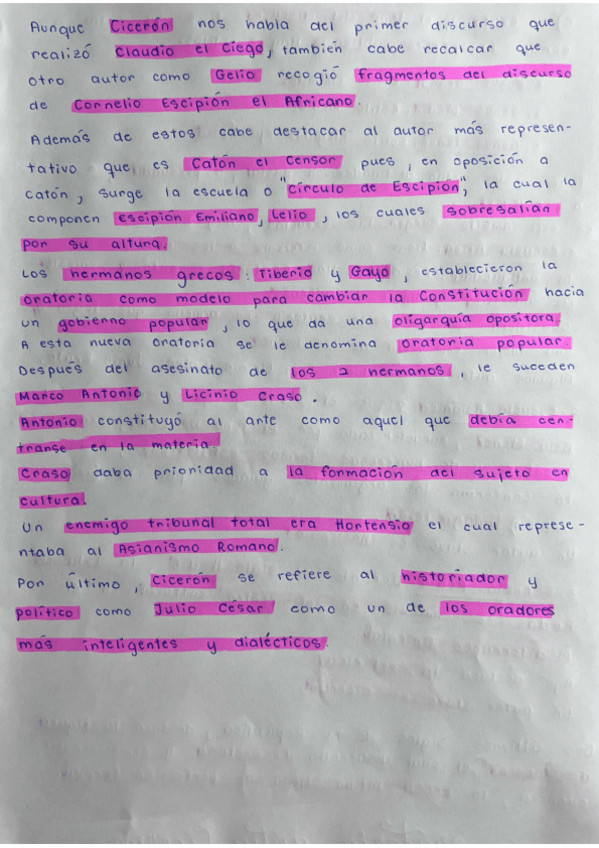 Aunque Cicerón nos habla del primer discurso que
realizó Claudio el Ciego, también cabe recalcar que
otro autor como Gelio recogió fragmentos del discurso
de Cornelio Escipión el Africano.
Además de estos cabe destacar al autor más represen-
tativo que es Catón el Censor pues, en oposición a
catón, surge la escuela o "Círculo de Escipión", la cual la
componen Escipión Emiliano, Lelio, los cuales sobresalían
por su altura.
Los hermanos grecos: Tiberio y Gayo, establecieron la
oratoria como modelo para cambiar la Constitución hacia
un gobierno popular, lo que da una oligarquía opositora.
A esta nueva oratoria se le denomina oratoria popular.
Después del asesinato de los 2 hermanos, le suceden
Marco Antonio y Licinio Craso.
Antonio constituyó al arte como aquel que debía cen-
transe en la materia.
Craso daba prioridad a la formación del sujeto en
cultura.
Un enemigo tribunal total era Hortensio el cual represe-
ntaba al Asianismo Romano.
Por último, Cicerón se refiere al historiador y
político como Julio César como un de los oradores
más inteligentes y dialécticos.